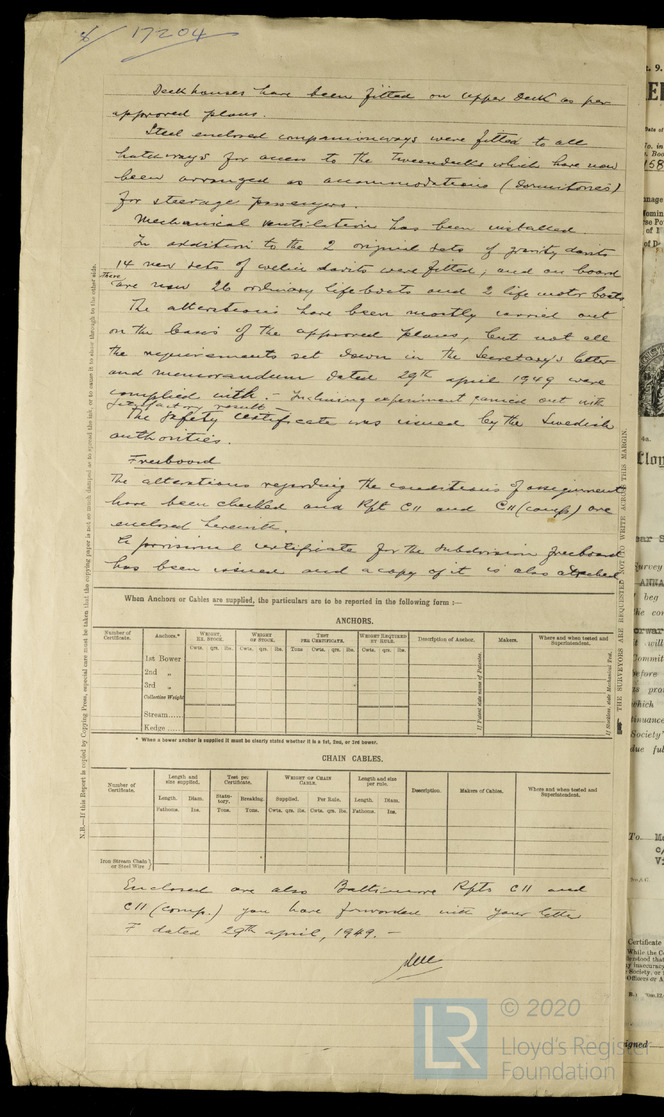 17204
Deckhouses have been fitted on upper Deck as per
approved plans.
Steel enclosed companionways were fitted to all
hatchways for access to the Tweendecks which have now
been arranged as accommodations (Dormitories)
for steerage passengers.
Mechanical ventilation has been installed.
In addition to the 2 original sets of gravity davits
14 new sets of welin davits were fitted, and on board
There are now 26 ordinary lifeboats and 2 life motor boats.
The alterations have been mostly carried out
on the basis of the approved plans, but not all
the requirements set down in the Secretary's letter
and memorandum dated 29th april 1949 were
complied with. - Inclining experiment carried out with
satisfactory result -
The safety certificate was issued by the Swedish
authorities.
Freeboard
The alterations regarding the conditions of assignment
have been checked and Rpt C11 and C11 (comp) are
enclosed herewith.
A provisional certificate for the subdivision freeboard
has been issued and a copy of it is also attached
When Anchors or Cables are supplied, the particulars are to be reported in the following form :—
ANCHORS.
Number of Certificate. Anchors.* WEIGHT, EX. STOCK. WEIGHT OF STOCK. TEST PER CERTIFICATE. WEIGHT REQUIRED BY RULE. Description of Anchor. Makers. Where and when tested and Superintendent.
Cwts. qrs. lbs. Cwts. qrs. lbs. Tons Cwts. qrs. lbs. Cwts. qrs. lbs.
1st Bower
2nd „
3rd „
Collective Weight
Stream......
Kedge......
If Patent state name of Patentee.
* When a bower anchor is supplied it must be clearly stated whether it is a 1st, 2nd, or 3rd bower.
CHAIN CABLES.
Number of Certificate. Length and size supplied. Test per Certificate. WEIGHT OF CHAIN CABLE. Length and size per rule. Description. Makers of Cables. Where and when tested and Superintendent.
Length. Diam. Statutory. Breaking. Supplied. Per Rule. Length. Diam.
Fathoms. Ins. Tons. Tons. Cwts. qrs. lbs. Cwts. qrs. lbs. Fathoms. Ins.
Iron Stream Chain or Steel Wire
Enclosed are also Baltimore Rpts C11 and
C11 (comp.) you have forwarded with your letter
F dated 29th april, 1949. -
N.B.—If this Report is copied by Copying Press, especial care must be taken that the copying paper is not so much damped as to spread the ink, or to cause it to show through to the other side.
THE SURVEYORS ARE REQUESTED NOT TO WRITE ACROSS THIS MARGIN.
LR
© 2020
Lloyd's Register
Foundation